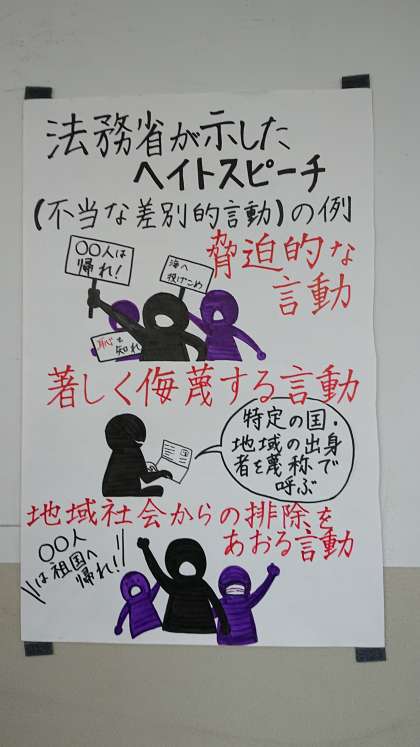 法務省が示した
ヘイトスピーチ
(不当な差別的言動)の例
脅迫的な
言動
〇〇人は
帰れ!
海へ
投げこめ
恥を
知れ
著しく侮蔑する言動
特定の国・
地域の出身
者を蔑称で
呼ぶ
地域社会からの排除を
あおる言動
〇〇人
は祖国へ
帰れ!